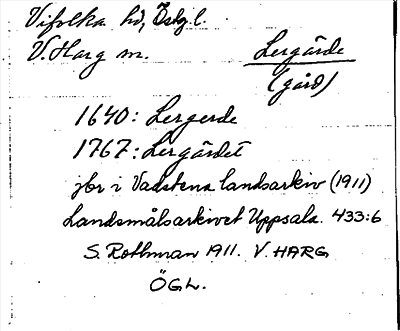 Vifolka hd, Östg.l.
V. Harg sn. Lergärde
(gård)
1640: Lergerde
1767: Lergärdet
jbr i Vadstena landsarkiv (1911)
Landsmålsarkivet Uppsala. 433:6
S. Rothman 1911. V. HARG
ÖGL.